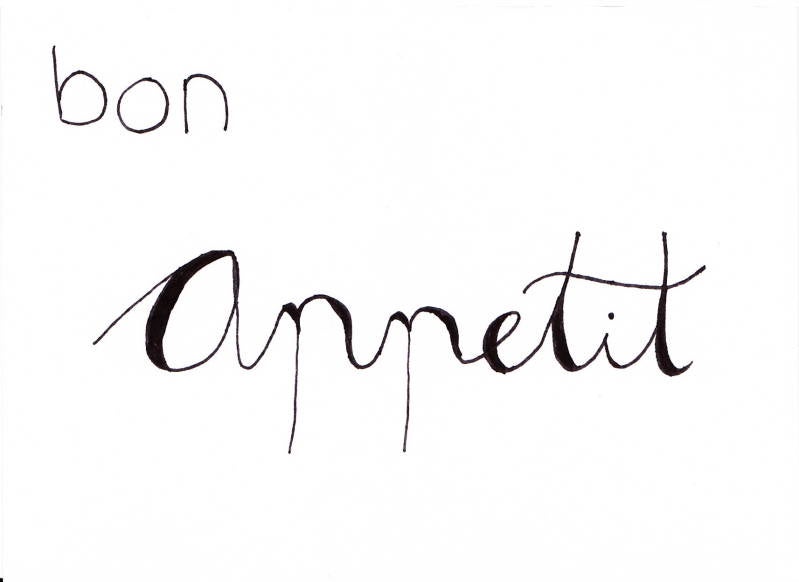 bon
appetit